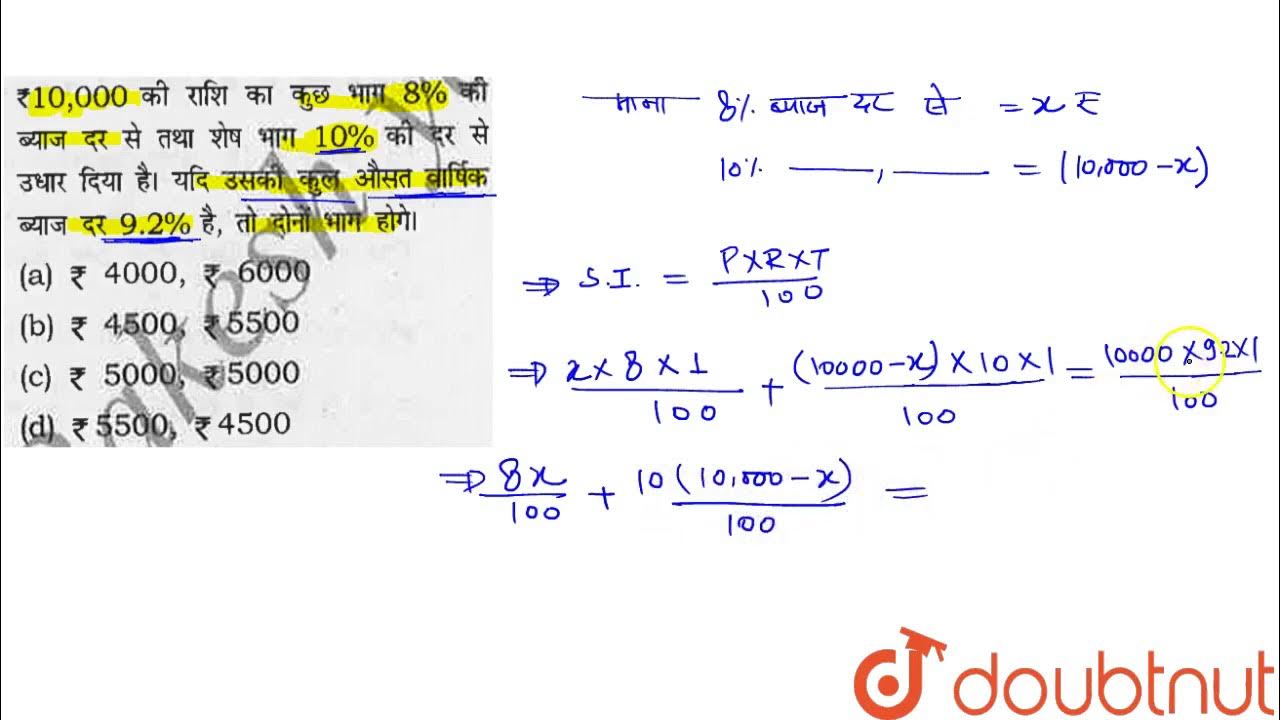 ₹10,000 की राशि का कुछ भाग 8% की
ब्याज दर से तथा शेष भाग 10% की दर से
उधार दिया है। यदि उसकी कुल औसत वार्षिक
ब्याज दर 9.2% है, तो दोनों भाग होगे।
(a) ₹ 4000, ₹ 6000
(b) ₹ 4500, ₹ 5500
(c) ₹ 5000, ₹ 5000
(d) ₹ 5500, ₹ 4500
माना 8% ब्याज दर से = x रु
10% —,— = (10,000 - x)
⇒ S.I. = P×R×T
100
⇒ x × 8 × 1 + (10000 - x) × 10 × 1 = 10000 × 9.2 × 1
100 100 100
⇒ 8x + 10 (10,000 - x) =
100 100
doubtnut